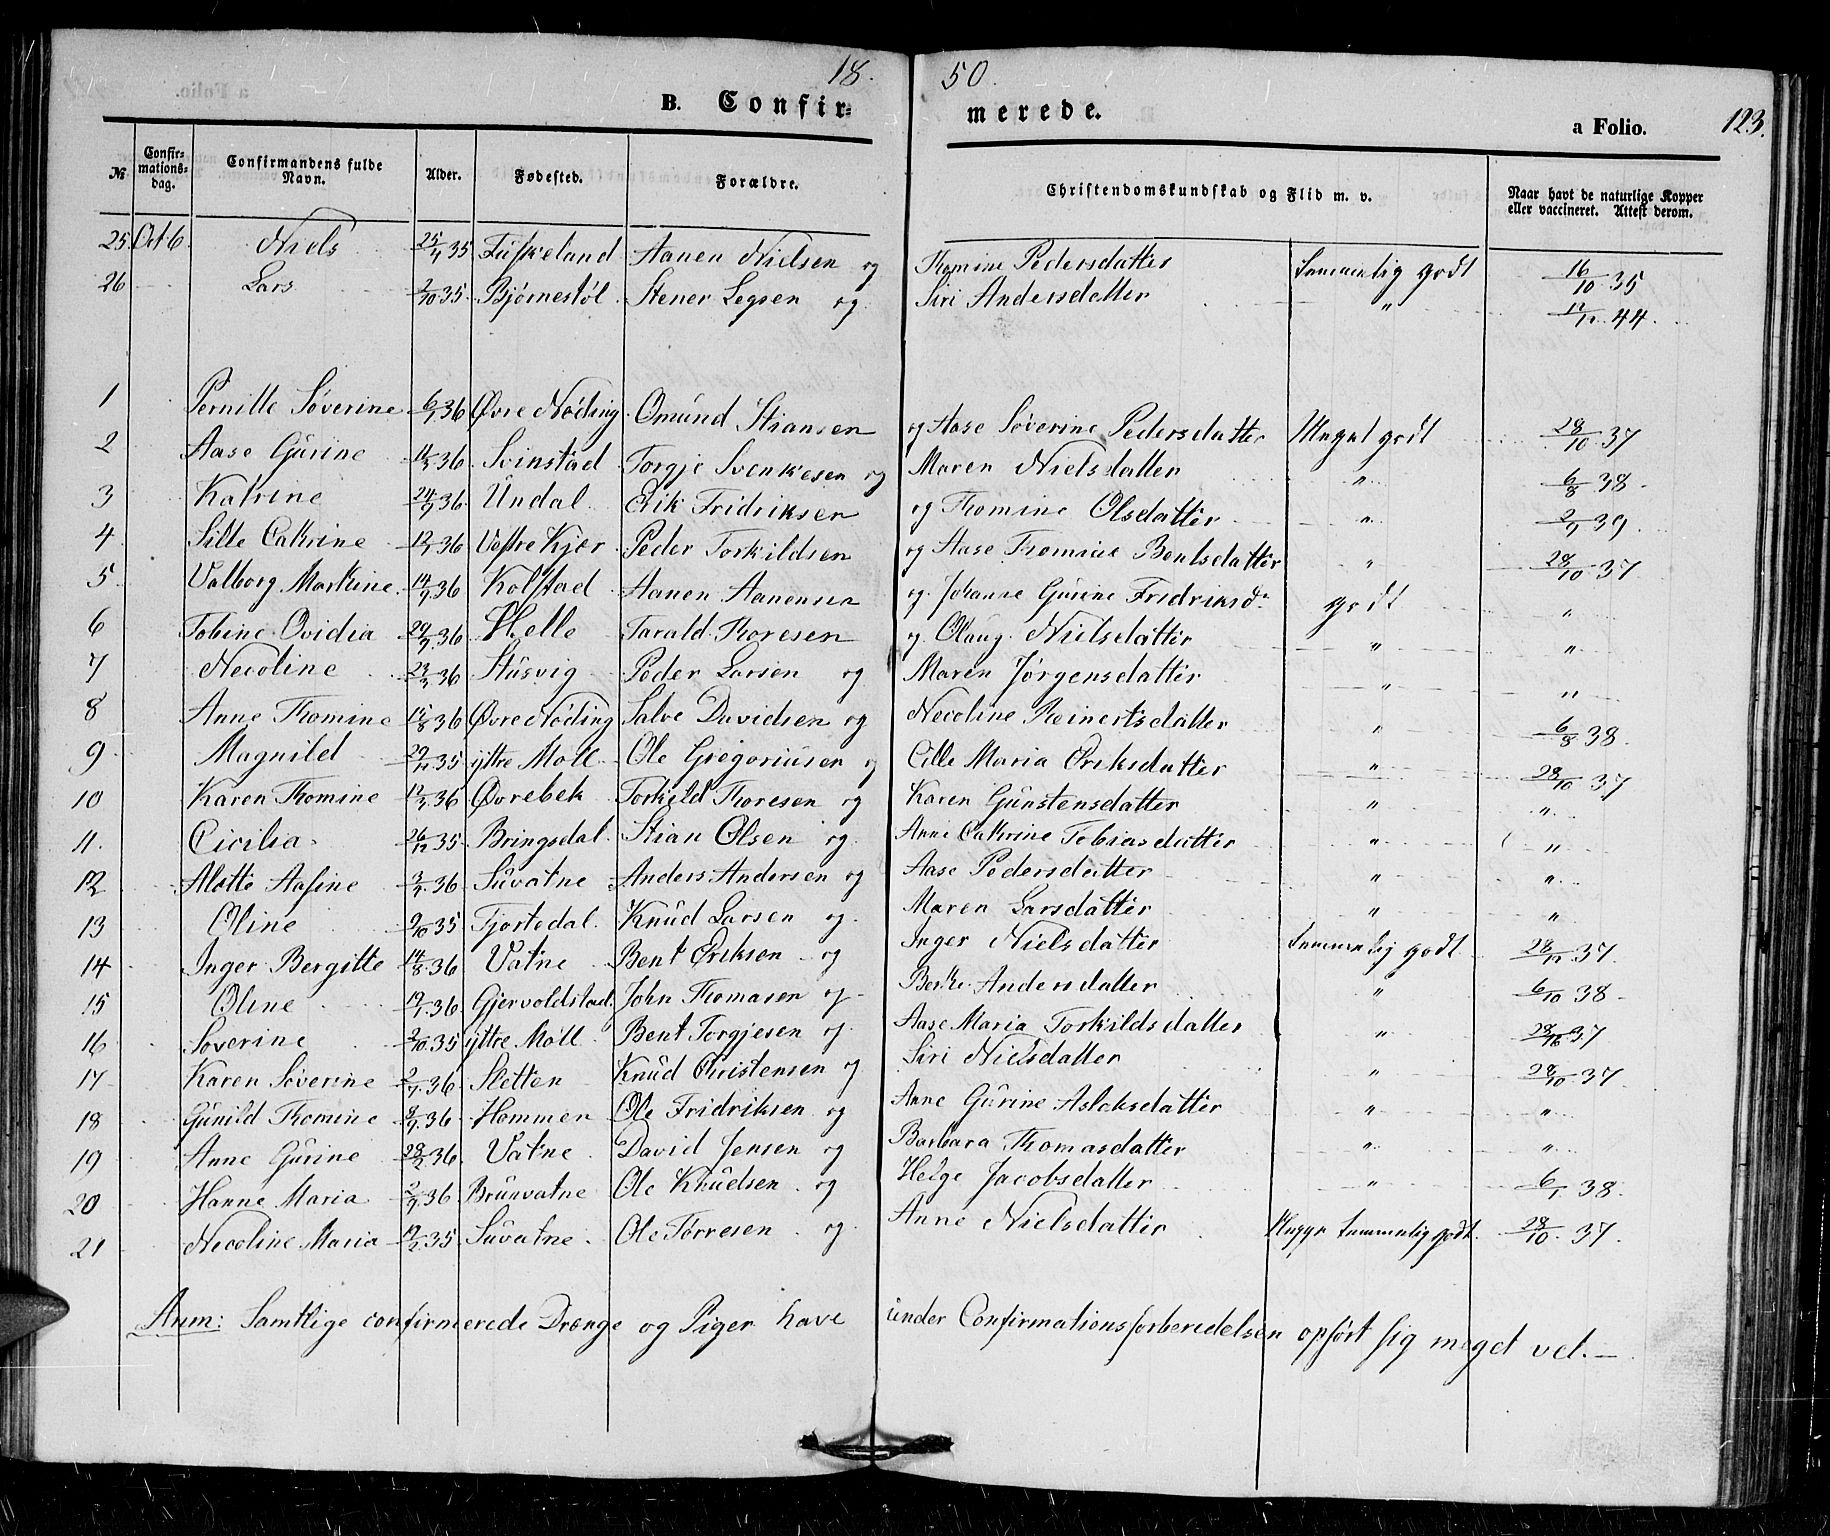 18. 50.
B. Confir= merede. a Folio. 123.
№ Confir-mations-dag. Confirmandens fulde Navn. Alder. Fødested. Forældre. Christendomskundskab og Flid m. v. Naar havt de naturlige Kopper eller vaccineret. Attest derom.
25. Oct 6. Niels 25/4 35 Fuskeland Aanen Nielsen og Thomine Pedersdatter temmelig godt 16/10 35
26 Lars 2/10 35. Bjørnestøl Stener Legsen og Siri Andersdatter " 44.
1 Pernille Søverine 6/1 36 Øvre Nøding Omund Stiansen og Aase Søverine Pedersdatter Meget godt 28/10 37
2 Aase Gurine 36 Svinstad Torgje Svenkesen og Maren Nielsdatter " 6/8 38
3 Katrine 36 Undal Erik Fridriksen og Thomine Olsdatter " 39
4 Sille Cathrine 36 Vestre Kjær Peder Torkildsen og Aase Thomine Bentsdatter " 28/10 37
5 Valborg Marthine 36 Kolstad Aanen Aanensen og Johanne Gurine Fridriksd. godt "
6 Tobine Ovidia 36 Helle Tarald Thoresen og Olaug Nielsdatter " "
7 Necoline 23/3 36 Stusvig Peder Larsen og Maren Jørgensdatter " "
8 Anne Thomine 36 Øvre Nøding Salve Davidsen og Necoline Reinertsdatter " 6/8 38.
9 Magnild 35 ýttre Møll Ole Gregoriusen og Cille Maria Eriksdatter " 28/10 37
10 Karen Thomine 36 Øvrebek Torkild Thoresen og Karen Gunstensdatter " "
11. Cicilia 26/12 35 Bringsdal Stian Olsen og Anne Cathrine Tobiasdatter " "
12 Alette Aasine 36 Suvatne Anders Andersen og Aase Pedersdatter " "
13 Oline 35 Fjortedal Knud Larsen og Maren Larsdatter " "
14 Inger Bergitte 14/8 36 Vatne Bent Eriksen og Inger Nielsdatter temmelig godt 37.
15 Oline 36 Gjervoldstad John Thomasen og Andersdatter " 6/10 38
16 Søverine 2/10 35 ýttre Møll Bent Torgjesen og Aase Maria Torkildsdatter " 37
17 Karen Søverine 36 Sletten Knud Christensen og Siri Nielsdatter " 28/10 37
18 Gunild Thomine 36 Hommen Ole Fridriksen og Anne Gurine Aslaksdatter " "
19 Anne Gurine 28/2 36 Vatne David Jensen og Barbara Thomasdatter " "
20 Hanne Maria 36 Brunvatne Ole Knudsen og Helge Jacobsdatter " 6/1 38.
21 Necoline Maria 35 Suvatne Ole Tørresen og Anne Nielsdatter temmelig godt. 28/10 37.
Anm: Samtlige confirmerede Drenge og Piger have under Confirmationsforberedelsen opført sig meget vel.